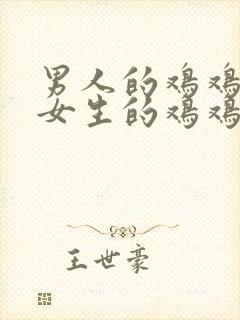 男人的鸡鸡
女生的鸡鸡
王世豪